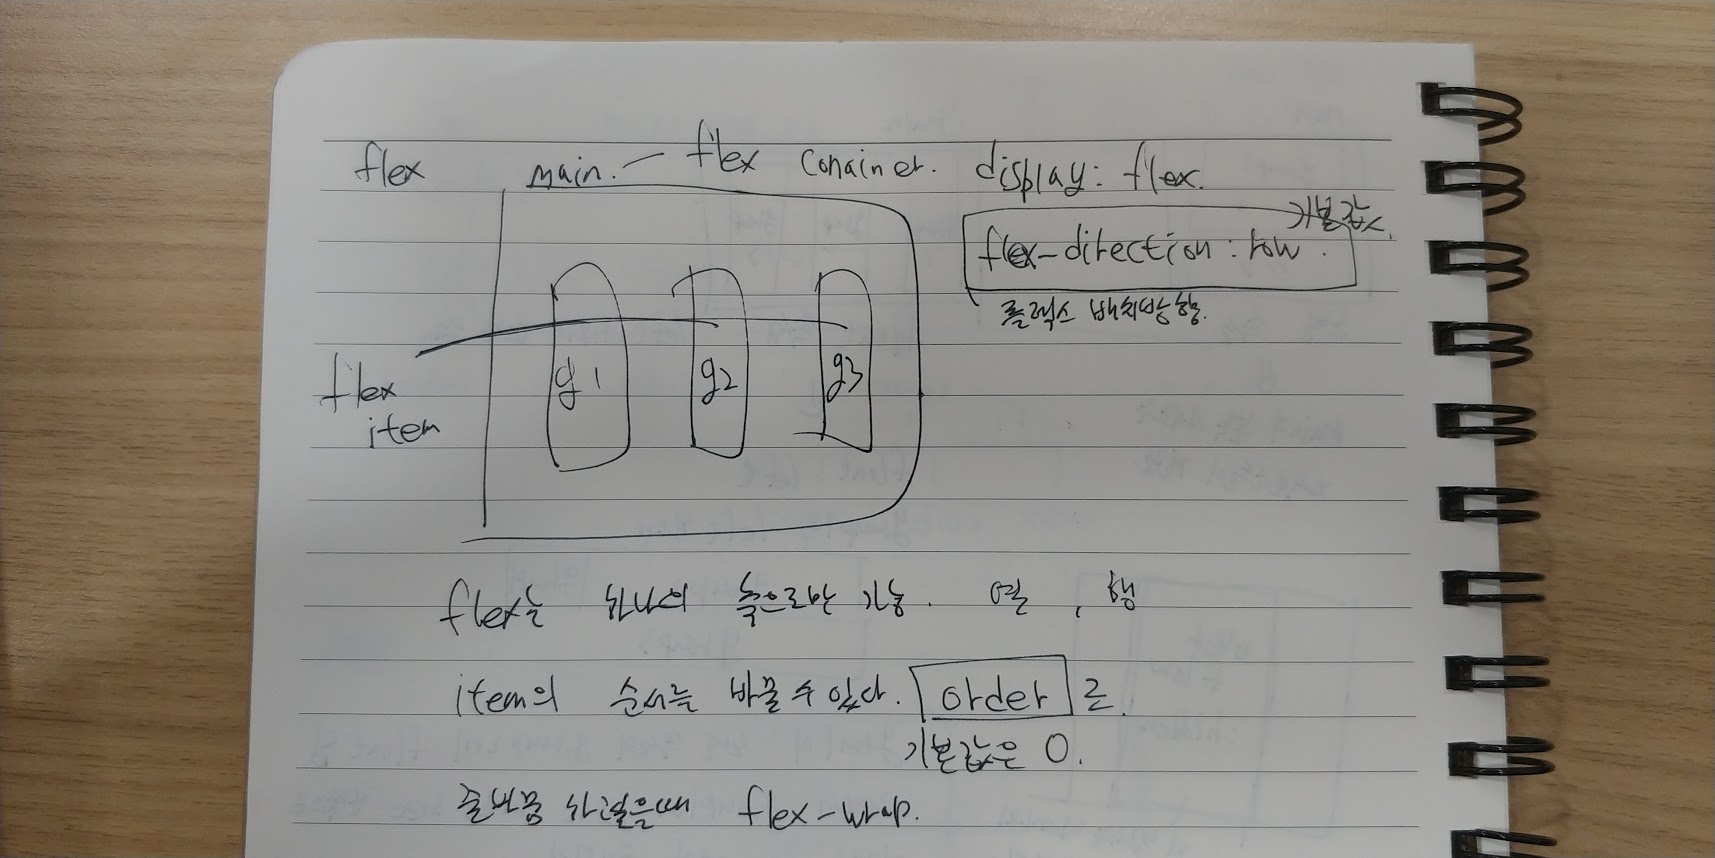 flex main. flex conainer. display: flex.
기본값.
flex-direction: row.
플렉스 배치방향.
g1 g2 g3
flex
item
flex는 하나의 축으로만 가능. 열, 행
item의 순서를 바꿀 수 있다. order 로.
기본값은 0.
줄바꿈 하고싶을때 flex-wrap.